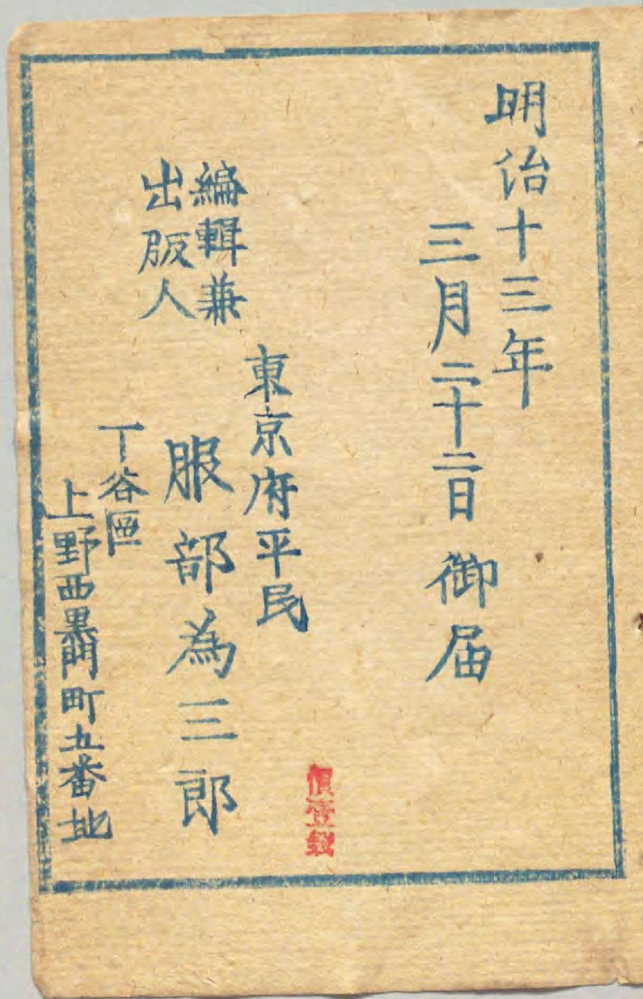 明治十三年
三月二十二日御届
價壹錢
東京府平民
編輯兼
出版人
服部為三郎
下谷區
上野西黒門町五番地